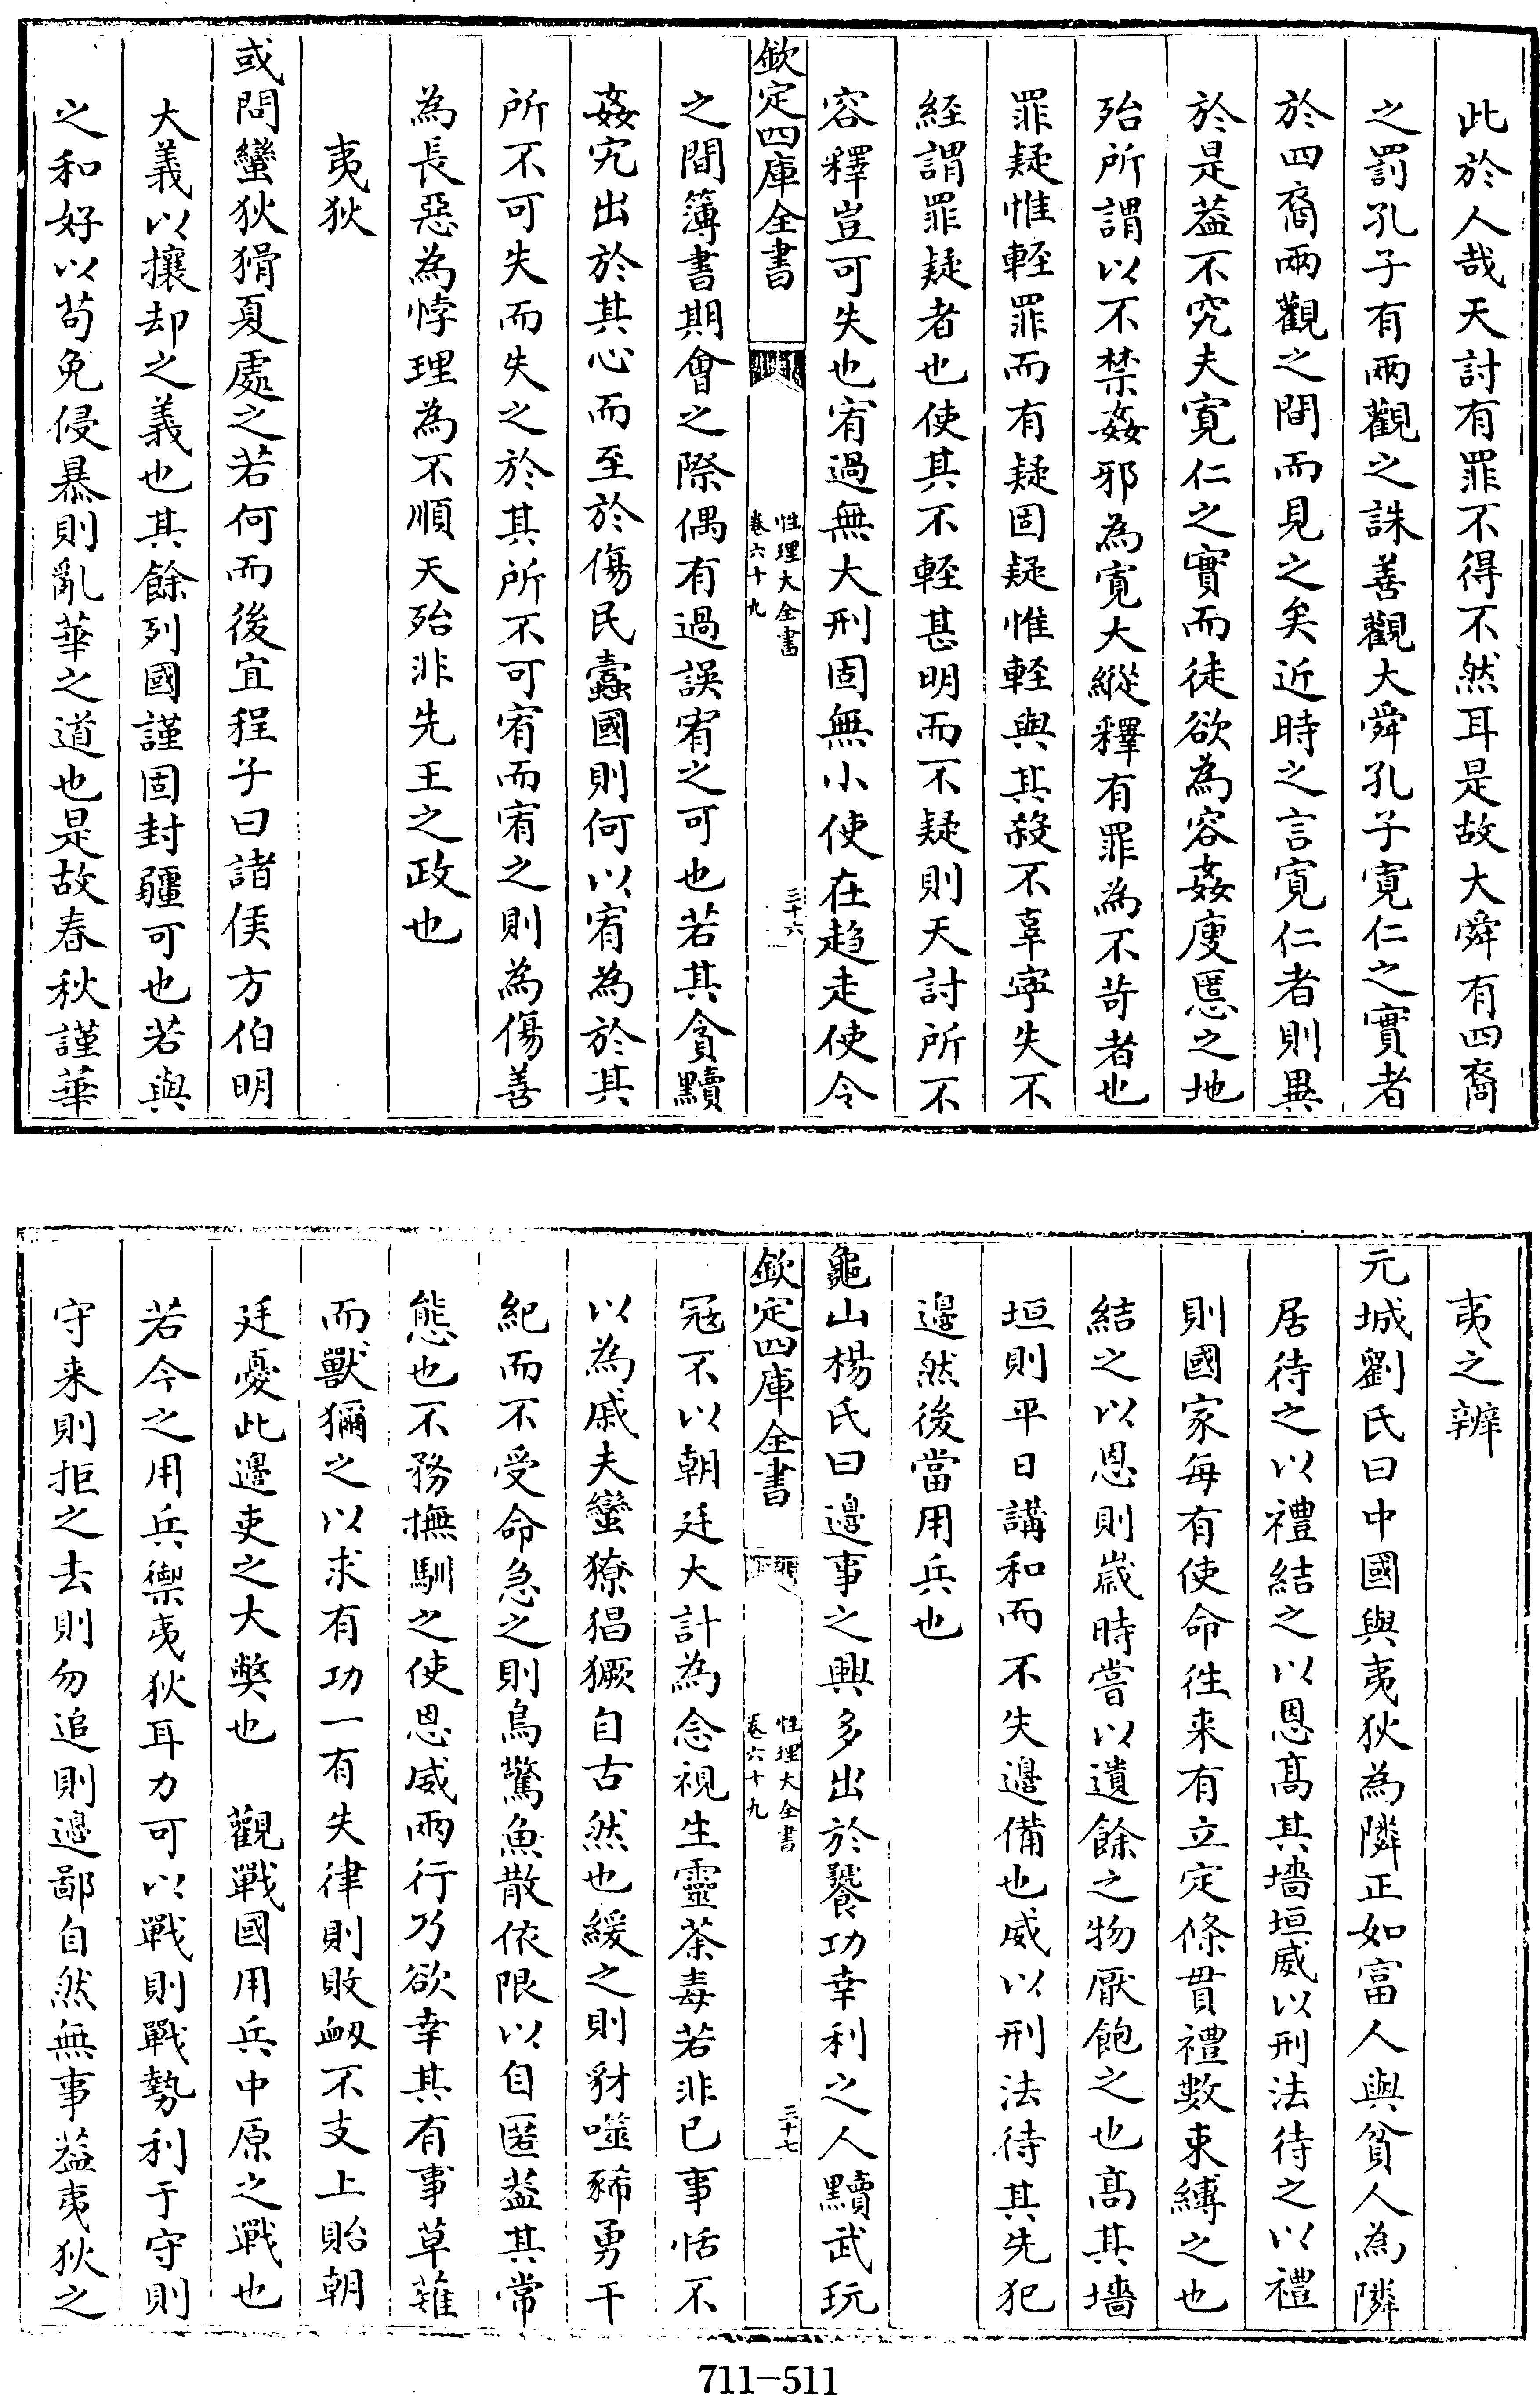 此於人哉天討有罪不得不然耳是故大舜有四裔
之罰孔子有兩觀之誅善觀大舜孔子寛仁之實者
於四裔兩觀之間而見之矣近時之言寛仁者則異
於是葢不究夫寛仁之實而徒欲為容姦廋慝之地
殆所謂以不禁姦邪為寛大縱釋有罪為不苛者也
罪疑惟輕罪而有疑固疑惟輕與其殺不辜寜失不
經謂罪疑者也使其不輕甚明而不疑則天討所不
容釋豈可失也宥過無大刑固無小使在趨走使令
欽定四庫全書
性理大全書
卷六十九
三十六
之間簿書期會之際偶有過誤宥之可也若其貪黷
姦宄出於其心而至於傷民蠹國則何以宥為於其
所不可失而失之於其所不可宥而宥之則為傷善
為長惡為悖理為不順天殆非先王之政也
夷狄
或問蠻狄猾夏處之若何而後宜程子曰諸侯方伯明
大義以攘却之義也其餘列國謹固封疆可也若與
之和好以苟免侵暴則亂華之道也是故春秋謹華
夷之辨
元城劉氏曰中國與夷狄為隣正如富人與貧人為隣
居待之以禮結之以恩髙其墻垣威以刑法待之以禮
則國家每有使命徃来有立定條貫禮數束縛之也
結之以恩則歳時嘗以遺餘之物厭飽之也髙其墻
垣則平日講和而不失邊備也威以刑法待其先犯
邊然後當用兵也
龜山楊氏曰邊事之興多出於饕功幸利之人黷武玩
欽定四庫全書
性理大全書
卷六十九
三十七
冦不以朝廷大計為念視生靈荼毒若非已事恬不
以為戚夫蠻獠猖獗自古然也緩之則豺噬豨勇干
紀而不受命急之則鳥驚魚散依限以自匿葢其常
態也不務撫馴之使恩威兩行乃欲幸其有事草薙
而獸獮之以求有功一有失律則敗衂不支上貽朝
廷憂此邊吏之大弊也　觀戰國用兵中原之戰也
若今之用兵禦夷狄耳力可以戰則戰勢利于守則
守来則拒之去則勿追則邊鄙自然無事葢夷狄之
711-511